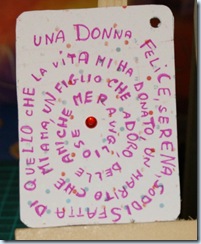 UNA DONNA FELICE, SERENA, SODDISFATTA DI QUELLO CHE LA VITA MI HA DONATO UN MARITO CHE MI AMA, UN FIGLIO CHE ADORO DELLE AMICHE MERAVIGLIOSE